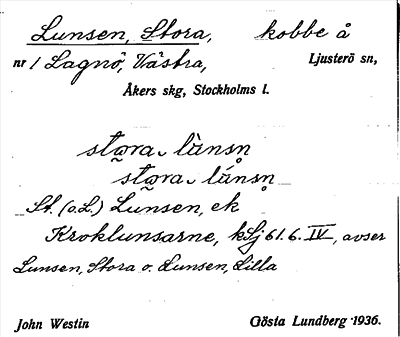 Lunsen, Stora, kobbe å
nr 1 Lagnö, Västra, Ljusterö sn,
Åkers skg, Stockholms l.
stωra lànsn̥
stωra lánsn̥
St. (o. L.) Lunsen, ek
Kroklunsarne, kSj 61.6.IV, avser
Lunsen, Stora o. Lunsen, Lilla
John Westin Gösta Lundberg 1936.